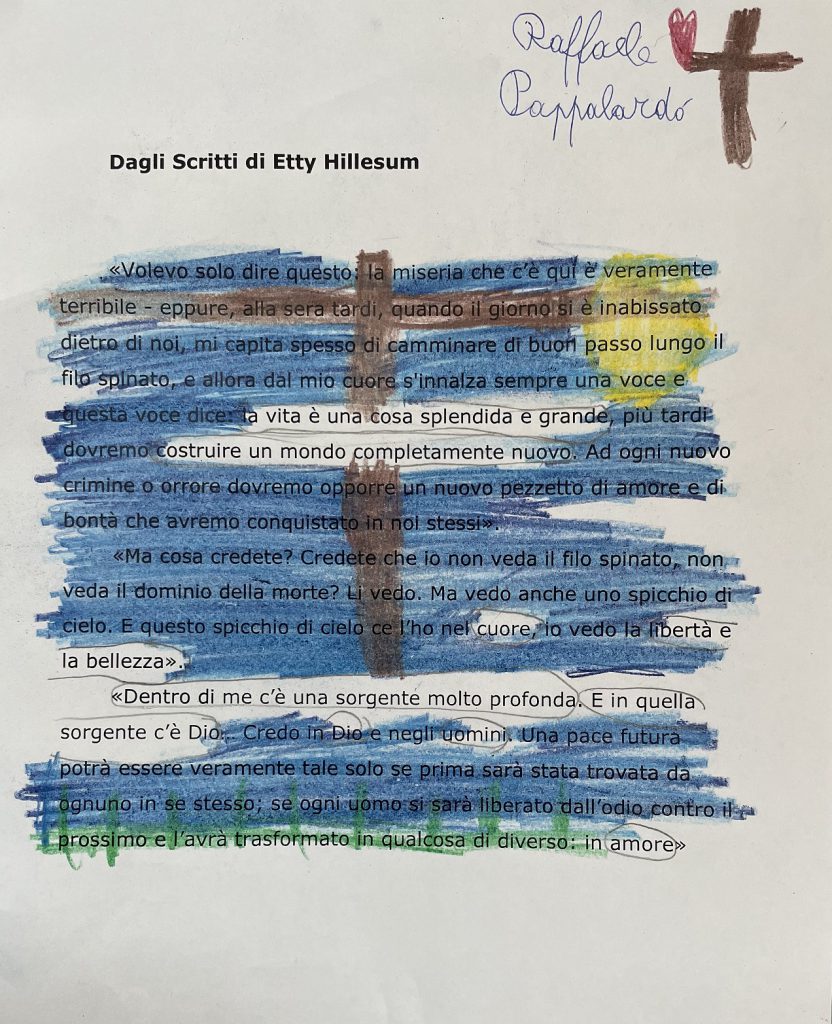 Raffaele
Pappalardo
Dagli Scritti di Etty Hillesum
«Volevo solo dire questo: la miseria che c'è qui è veramente
terribile - eppure, alla sera tardi, quando il giorno si è inabissato
dietro di noi, mi capita spesso di camminare di buon passo lungo il
filo spinato, e allora dal mio cuore s'innalza sempre una voce e
questa voce dice: la vita è una cosa splendida e grande, più tardi
dovremo costruire un mondo completamente nuovo. Ad ogni nuovo
crimine o orrore dovremo opporre un nuovo pezzetto di amore e di
bontà che avremo conquistato in noi stessi».
«Ma cosa credete? Credete che io non veda il filo spinato, non
veda il dominio della morte? Li vedo. Ma vedo anche uno spicchio di
cielo. E questo spicchio di cielo ce l'ho nel cuore, io vedo la libertà e
la bellezza».
«Dentro di me c'è una sorgente molto profonda. E in quella
sorgente c'è Dio... Credo in Dio e negli uomini. Una pace futura
potrà essere veramente tale solo se prima sarà stata trovata da
ognuno in se stesso; se ogni uomo si sarà liberato dall'odio contro il
prossimo e l'avrà trasformato in qualcosa di diverso: in amore»